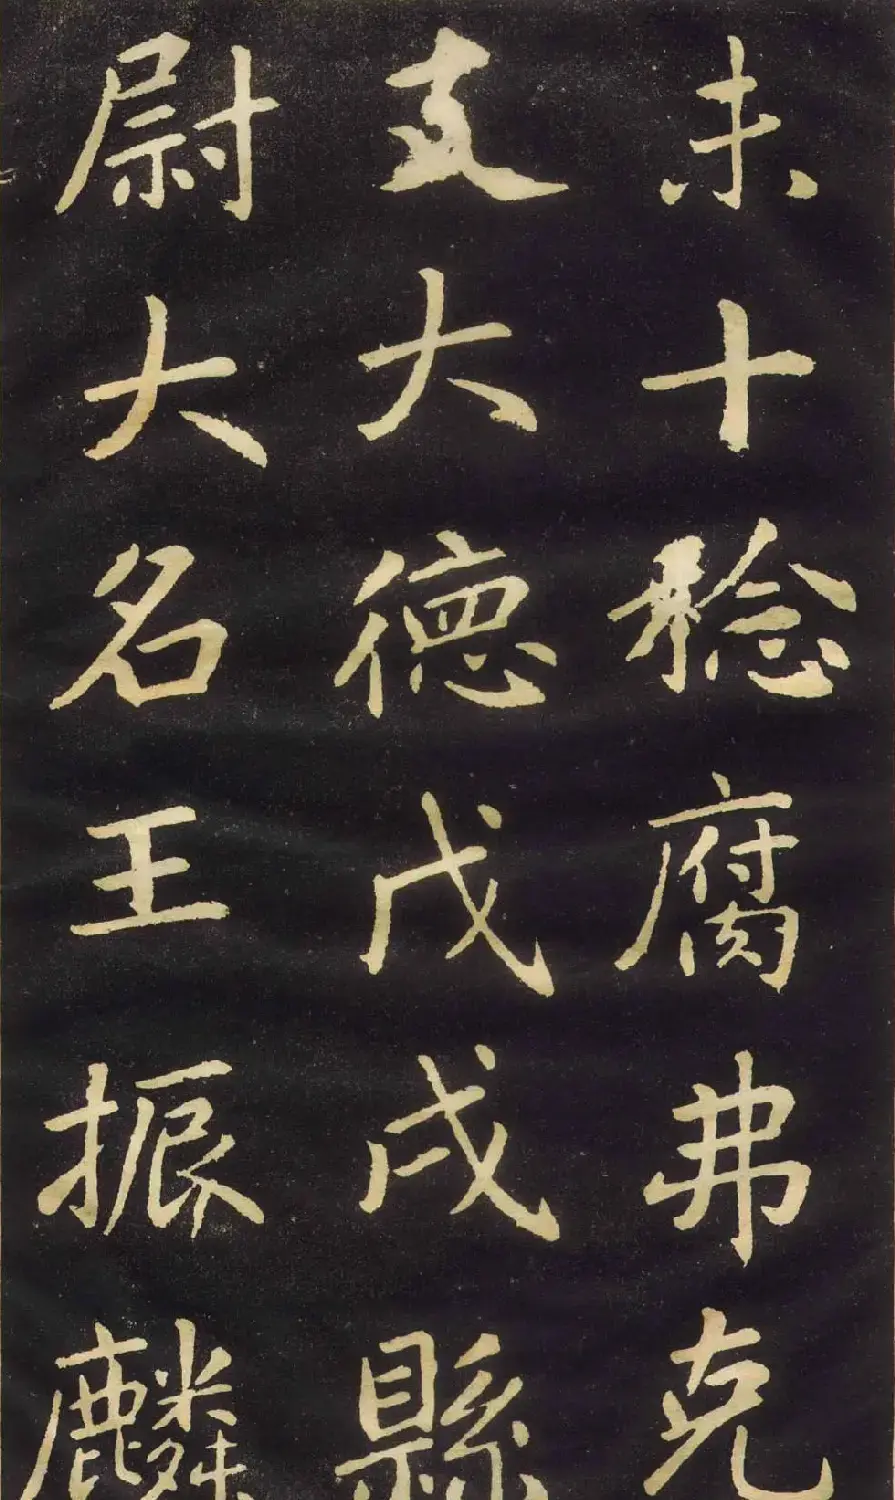 未十稔腐弗克
支大德戊戌縣
尉大名王振麟